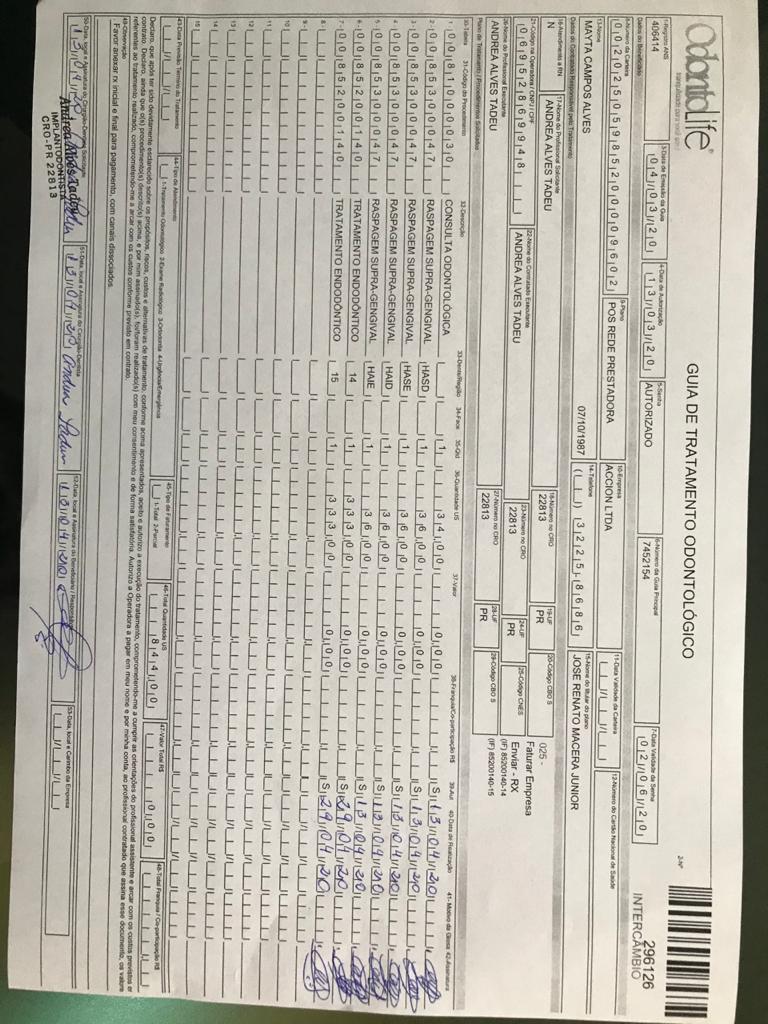 OdontoLife®
tranquilidade para você sorrir
GUIA DE TRATAMENTO ODONTOLÓGICO
2-Nº
296126
INTERCÂMBIO
1-Registro ANS
406414
3-Data de Emissão da Guia
04/03/20
4-Data de Autorização
13/03/20
5-Senha
AUTORIZADO
6-Número da Guia Principal
7452154
7-Data Validade da Senha
02/06/20
Dados do Beneficiário
8-Número da Carteira
9-Plano
POS REDE PRESTADORA
10-Empresa
ACCION LTDA
11-Data Validade da Carteira
12-Número do Cartão Nacional de Saúde
13-Nome
MAYTA CAMPOS ALVES
07/10/1987
14-Telefone
3225-8686
15-Nome do titular do plano
JOSE RENATO MACERA JUNIOR
Dados do Contratado Responsável pelo Tratamento
16-Atendimento a RN
N
17-Nome do Profissional Solicitante
ANDREA ALVES TADEU
18-Número no CRO
22813
19-UF
PR
20-Código CBO S
025 -
Faturar Empresa
Enviar - RX
(IF) 85200140-14
(IF) 85200140-15
21-Código na Operadora / CNPJ / CPF
06952869948
22-Nome do Contratado Executante
ANDREA ALVES TADEU
23-Número no CRO
22813
24-UF
PR
25-Código CNES
26-Nome do Profissional Executante
ANDREA ALVES TADEU
27-Número no CRO
22813
28-UF
PR
29-Código CBO S
Plano de Tratamento / Procedimentos Solicitados
30-Tabela 31-Código do Procedimento 32-Descrição 33-Dente/Região 34-Face 35-Qtd 36-Quantidade US 37-Valor 38-Franquia/Co-participação R$ 39-Aut 40-Data de Realização 41- Motivo da Glosa 42-Assinatura
1- 00 81000030 CONSULTA ODONTOLÓGICA 1 34,00 0,00 S 13/04/20
2- 00 85300047 RASPAGEM SUPRA-GENGIVAL HASD 1 36,00 0,00 S 13/04/20
3- 00 85300047 RASPAGEM SUPRA-GENGIVAL HASE 1 36,00 0,00 S 13/04/20
4- 00 85300047 RASPAGEM SUPRA-GENGIVAL HAID 1 36,00 0,00 S 13/04/20
5- 00 85300047 RASPAGEM SUPRA-GENGIVAL HAIE 1 36,00 0,00 S 13/04/20
6- 00 85200140 TRATAMENTO ENDODÔNTICO 14 1 333,00 0,00 S 29/04/20
7- 00 85200140 TRATAMENTO ENDODÔNTICO 15 1 333,00 0,00 S 29/04/20
8
9
10
11
12
13
14
15
43-Data Previsão Término do Tratamento
44-Tipo de Atendimento
1-Tratamento Odontológico 2-Exame Radiológico 3-Ortodontia 4-Urgência/Emergência
45-Tipo de Faturamento
1-Total 2-Parcial
46-Total Quantidade US
844,00
47-Valor Total R$
0,00
48-Total Franquia / Co-participação R$
Declaro, que após ter sido devidamente esclarecido sobre os propósitos, riscos, custos e alternativas de tratamento, conforme acima apresentados, aceito e autorizo a execução do tratamento, comprometendo-me a cumprir as orientações do profissional assistente e arcar com os custos previstos em
contrato. Declaro, ainda que o(s) procedimento(s) descrito(s) acima, e por mim assinado(s), foi/foram realizado(s) com meu consentimento e de forma satisfatória. Autorizo a Operadora a pagar em meu nome e por minha conta, ao profissional contratado que assina esse documento, os valores
referentes ao tratamento realizado, comprometendo-me a arcar com os custos conforme previsto em contrato.
49-Observação
Favor anexar rx inicial e final para pagamento, com canais dissociados.
50-Data, local e Assinatura do Cirurgião-Dentista Solicitante
13/04/20
51-Data, local e Assinatura do Cirurgião-Dentista
13/04/20 Andrea Tadeu
52-Data, local e Assinatura do Beneficiário / Responsável
13/04/20
53-Data, local e Carimbo da Empresa
Andrea Alves Tadeu
IMPLANTODONTISTA
CRO-PR 22813